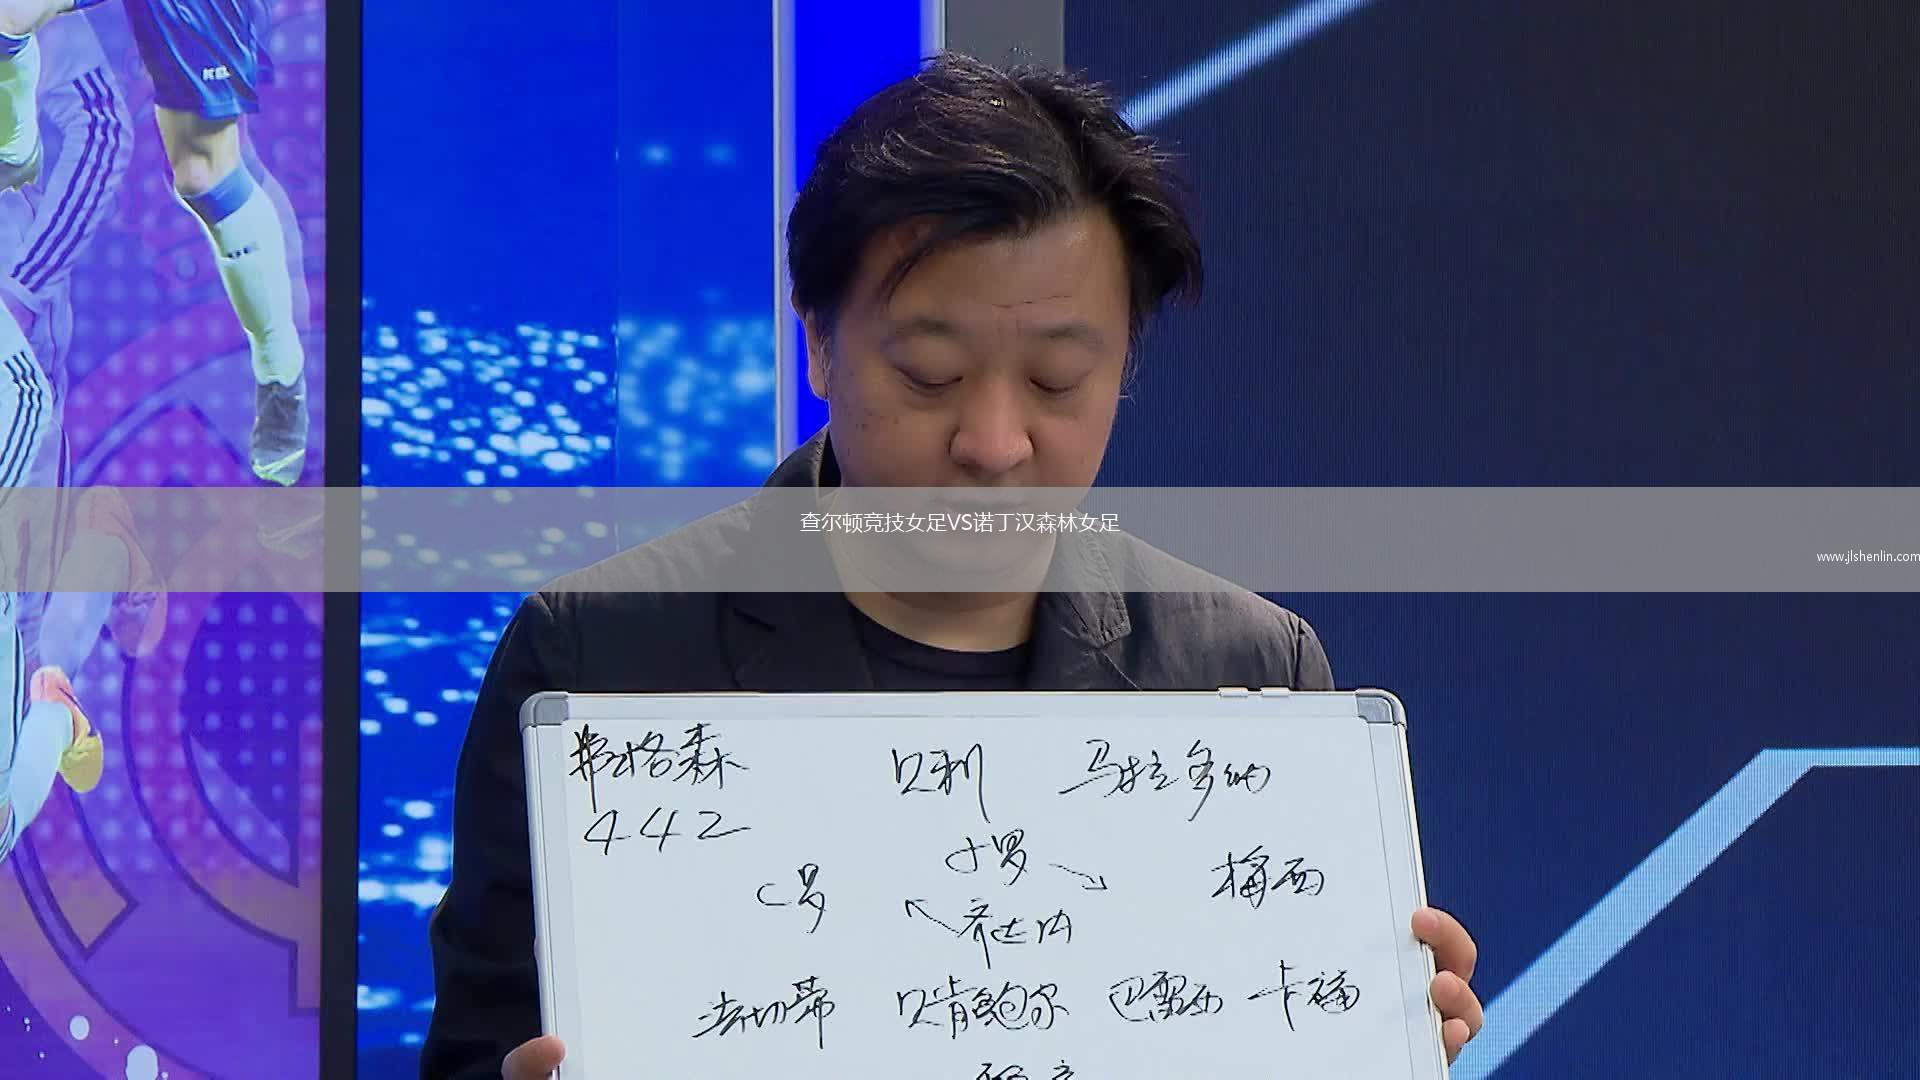 查尔顿竞技女足VS诺丁汉森林女足
www.jlshenlin.com
弗格森 贝利 马拉多纳
442
小罗
C罗 梅西
齐达内
法切蒂 贝肯鲍尔 巴雷西 卡福